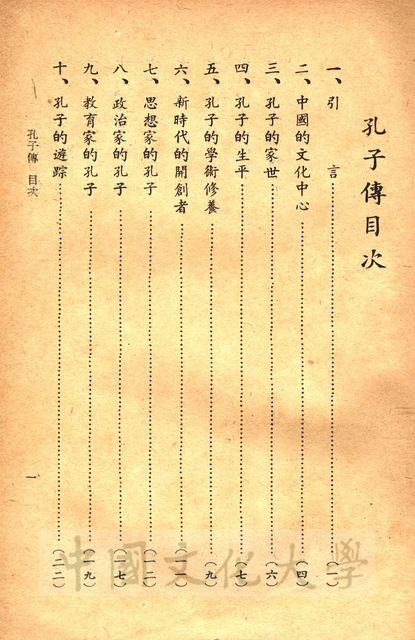 孔子傳目次
一、引　言……………（一）
二、中國的文化中心……………（四）
三、孔子的家世……………（六）
四、孔子的生平……………（七）
五、孔子的學術修養……………（九）
六、新時代的開創者……………（一一）
七、思想家的孔子……………（一二）
八、政治家的孔子……………（一七）
九、教育家的孔子……………（一九）
十、孔子的遊踪……………（二二）
孔子傳 目次
一
中國文化大學